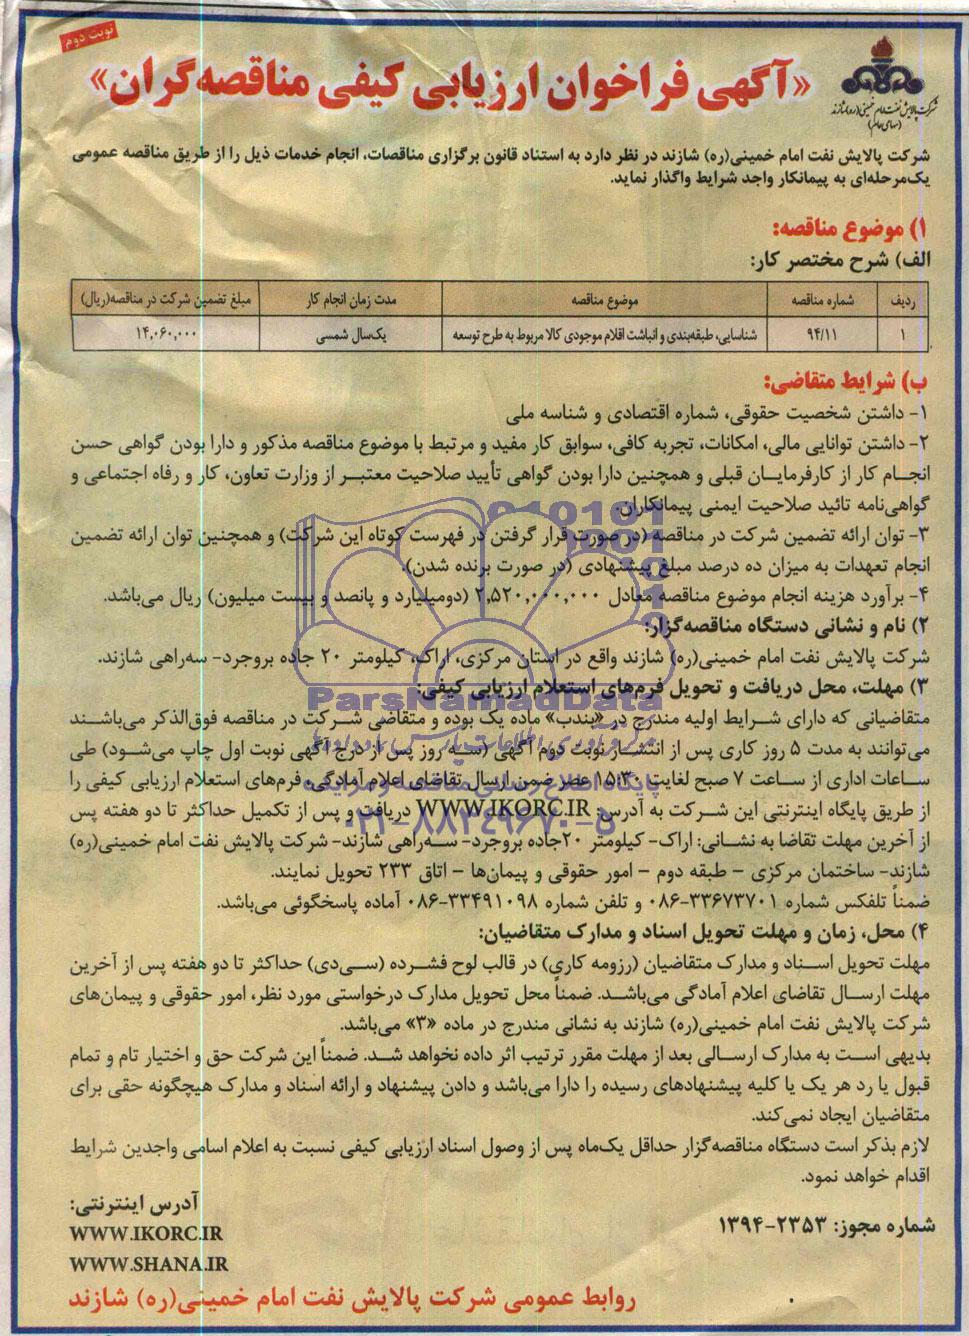 نوبت دوم
«آگهی فراخوان ارزیابی کیفی مناقصه‌گران»
شرکت پالایش نفت امام خمینی(ره) شازند
(سهامی عام)
شرکت پالایش نفت امام خمینی(ره) شازند در نظر دارد به استناد قانون برگزاری مناقصات، انجام خدمات ذیل را از طریق مناقصه عمومی
یک‌مرحله‌ای به پیمانکار واجد شرایط واگذار نماید.
۱) موضوع مناقصه:
الف) شرح مختصر کار:
ردیف شماره مناقصه موضوع مناقصه مدت زمان انجام کار مبلغ تضمین شرکت در مناقصه(ریال)
۱ ۹۴/۱۱ شناسایی، طبقه‌بندی و انباشت اقلام موجودی کالا مربوط به طرح توسعه یک‌سال شمسی ۱۴,۰۶۰,۰۰۰
ب) شرایط متقاضی:
۱- داشتن شخصیت حقوقی، شماره اقتصادی و شناسه ملی
۲- داشتن توانایی مالی، امکانات، تجربه کافی، سوابق کار مفید و مرتبط با موضوع مناقصه مذکور و دارا بودن گواهی حسن
انجام کار از کارفرمایان قبلی و همچنین دارا بودن گواهی تأیید صلاحیت معتبر از وزارت تعاون، کار و رفاه اجتماعی و
گواهی‌نامه تائید صلاحیت ایمنی پیمانکاران.
۳- توان ارائه تضمین شرکت در مناقصه (در صورت قرار گرفتن در فهرست کوتاه این شرکت) و همچنین توان ارائه تضمین
انجام تعهدات به میزان ده درصد مبلغ پیشنهادی (در صورت برنده شدن).
۴- برآورد هزینه انجام موضوع مناقصه معادل ۲,۵۲۰,۰۰۰,۰۰۰ (دومیلیارد و پانصد و بیست میلیون) ریال می‌باشد.
۲) نام و نشانی دستگاه مناقصه‌گزار:
شرکت پالایش نفت امام خمینی(ره) شازند واقع در استان مرکزی، اراک، کیلومتر ۲۰ جاده بروجرد- سه‌راهی شازند.
۳) مهلت، محل دریافت و تحویل فرم‌های استعلام ارزیابی کیفی:
متقاضیانی که دارای شرایط اولیه مندرج در «بندب» ماده یک بوده و متقاضی شرکت در مناقصه فوق‌الذکر می‌باشند
می‌توانند به مدت ۵ روز کاری پس از انتشار نوبت دوم آگهی (سه روز پس از درج آگهی نوبت اول چاپ می‌شود) طی
ساعات اداری از ساعت ۷ صبح لغایت ۱۵:۳۰ عصر ضمن ارسال تقاضای اعلام آمادگی، فرم‌های استعلام ارزیابی کیفی را
از طریق پایگاه اینترنتی این شرکت به آدرس: WWW.IKORC.IR دریافت و پس از تکمیل حداکثر تا دو هفته پس
از آخرین مهلت تقاضا به نشانی: اراک- کیلومتر ۲۰جاده بروجرد- سه‌راهی شازند- شرکت پالایش نفت امام خمینی(ره)
شازند- ساختمان مرکزی – طبقه دوم – امور حقوقی و پیمان‌ها – اتاق ۲۳۳ تحویل نمایند.
ضمناً تلفکس شماره ۳۳۶۷۳۷۰۱-۰۸۶ و تلفن شماره ۳۳۴۹۱۰۹۸-۰۸۶ آماده پاسخگوئی می‌باشد.
۴) محل، زمان و مهلت تحویل اسناد و مدارک متقاضیان:
مهلت تحویل اسناد و مدارک متقاضیان (رزومه کاری) در قالب لوح فشرده (سی‌دی) حداکثر تا دو هفته پس از آخرین
مهلت ارسال تقاضای اعلام آمادگی می‌باشد. ضمناً محل تحویل مدارک درخواستی مورد نظر، امور حقوقی و پیمان‌های
شرکت پالایش نفت امام خمینی(ره) شازند به نشانی مندرج در ماده «۳» می‌باشد.
بدیهی است به مدارک ارسالی بعد از مهلت مقرر ترتیب اثر داده نخواهد شد. ضمناً این شرکت حق و اختیار تام و تمام
قبول یا رد هر یک یا کلیه پیشنهادهای رسیده را دارا می‌باشد و دادن پیشنهاد و ارائه اسناد و مدارک هیچگونه حقی برای
متقاضیان ایجاد نمی‌کند.
لازم بذکر است دستگاه مناقصه‌گزار حداقل یک‌ماه پس از وصول اسناد ارزیابی کیفی نسبت به اعلام اسامی واجدین شرایط
اقدام خواهد نمود.
شماره مجوز: ۲۳۵۳-۱۳۹۴
آدرس اینترنتی:
WWW.IKORC.IR
WWW.SHANA.IR
روابط عمومی شرکت پالایش نفت امام خمینی(ره) شازند
ParsNamadData
پایگاه اطلاع رسانی مناقصه و مزایده
۰۲۱-۸۸۳۴۹۶۷۰-۵